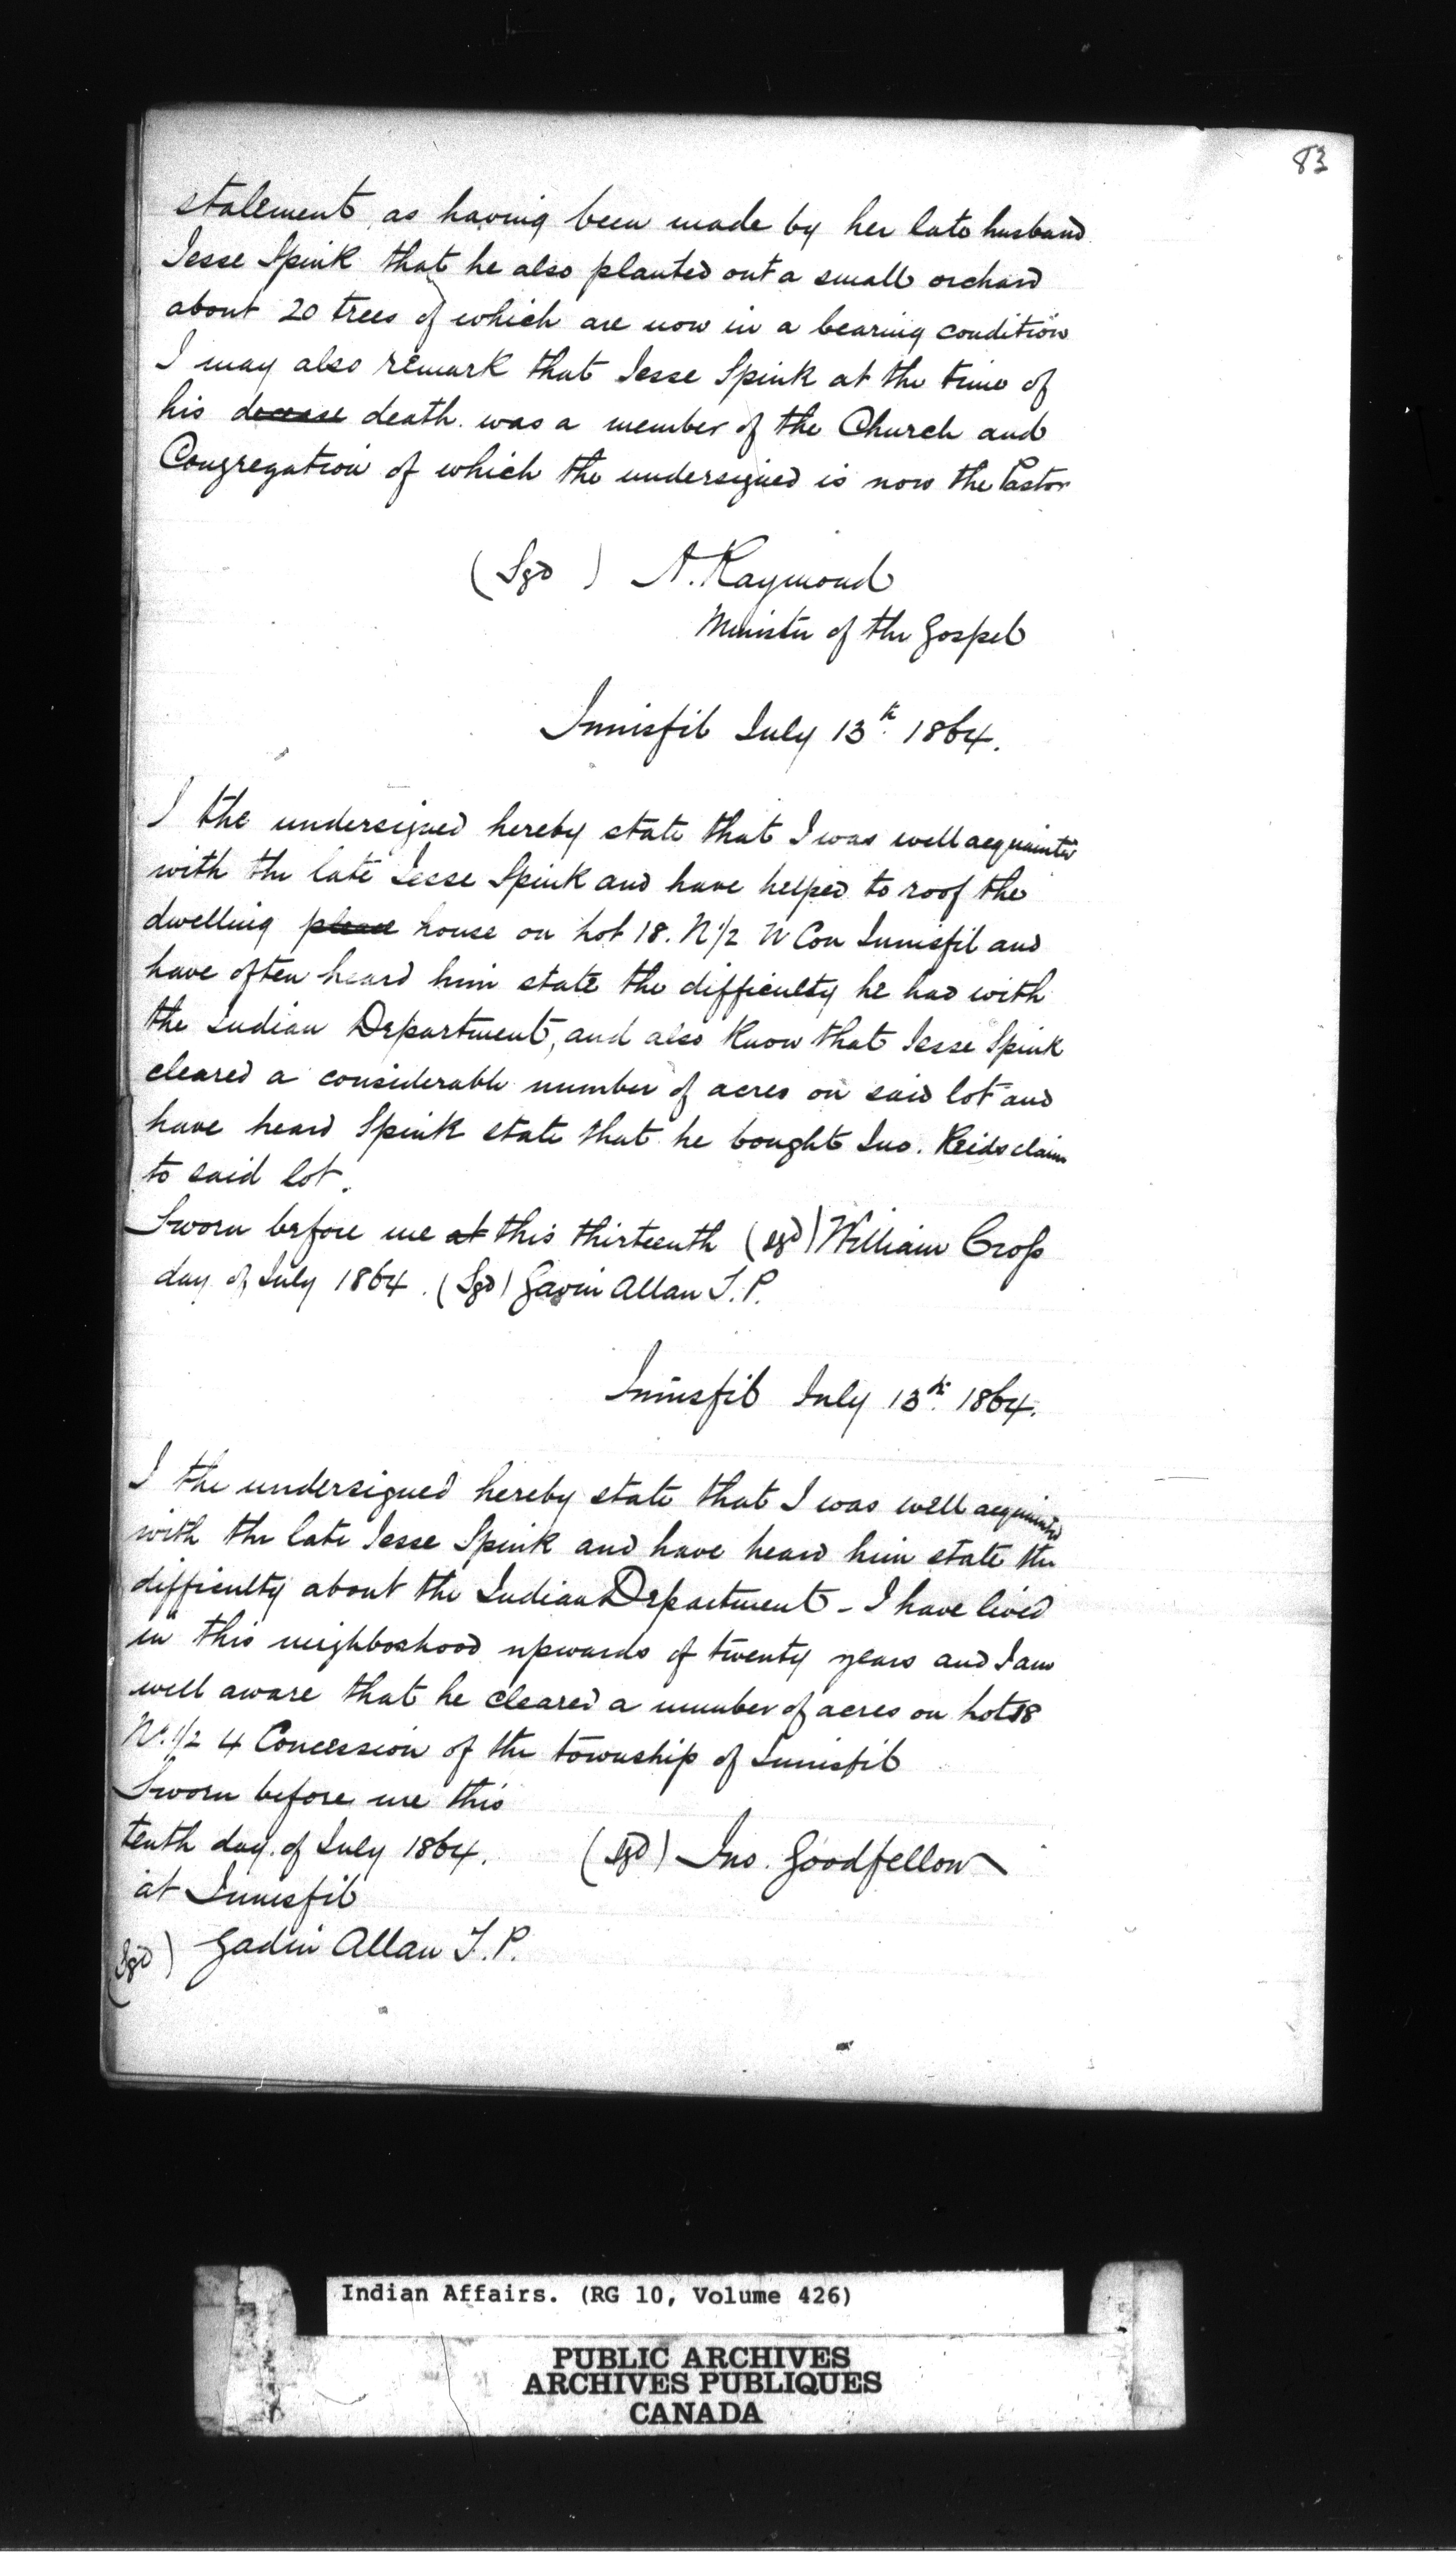 83
statement, as having been made by her late husband
Jesse Spink that he also planted out a small orchard
about 20 trees of which are now in a bearing condition
I may also remark that Jesse Spink at the time of
his decease death. was a member of the Church and
Congregation of which the undersigned is now the Pastor
(Sgd) A. Raymond
Minister of the Gospel
Innisfil July 13th 1864.
I the undersigned hereby state that I was well acquainted
with the late Jesse Spink and have helped to roof the
dwelling place house on Lot 18. N 1/2 Con Innisfil and
have often heard him state the difficulty he had with
the Indian Department, and also know that Jesse Spink
cleared a considerable number of acres on said lot and
have heard Spink state that he bought Jno. Reids claim
to said lot.
Sworn before me at this thirteenth (sgd) William Cross
day of July 1864. (Sgd) Gavin Allan J.P.
Innisfil July 13th 1864.
I the undersigned hereby state that I was well acquainted
with the late Jesse Spink and have heard him state the
difficulty about the Indian Department - I have lived
in this neighborhood upwards of twenty years and I am
well aware that he cleared a number of acres on Lot 18
N. 1/2 4 Concession of the township of Innisfil
Sworn before me this
tenth day of July 1864.
(Sgd) Jno. Goodfellow
at Innisfil
(Sgd) Gavin Allan J.P.
Indian Affairs. (RG 10, Volume 426)
PUBLIC ARCHIVES
ARCHIVES PUBLIQUES
CANADA